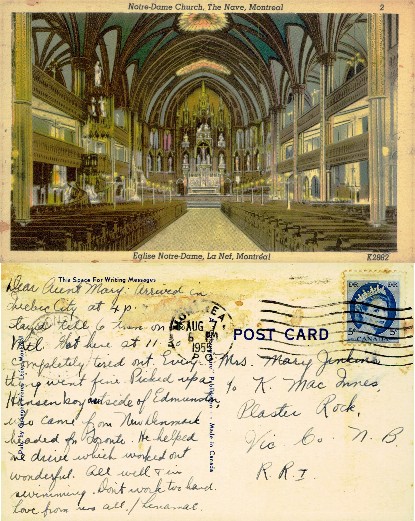 Notre-Dame Church, The Nave, Montreal
2
Eglise Notre-Dame, La Nef, Montréal
K2882
This Space For Writing Messages
Dear Aunt Mary: Arrived in
Quebec City at 4 p.
Stayed till 6 then on to
Mtl. Got here at 11:
Completely tired out. Every
thing went fine. Picked up a
Hansen boy outside of Edmunston
who came from New Denmark
headed for Toronto. He helped
me drive which worked out
wonderful. All well & in
swimming. Don't work too hard.
Love from us all /
AUG 7
PM
1955
POST CARD
Made in Canada
CANADA
5
Mrs. Mary Jenkins
c/o K. Mac Innes
Plaster Rock,
Vic Co. N. B.
R.R.1.